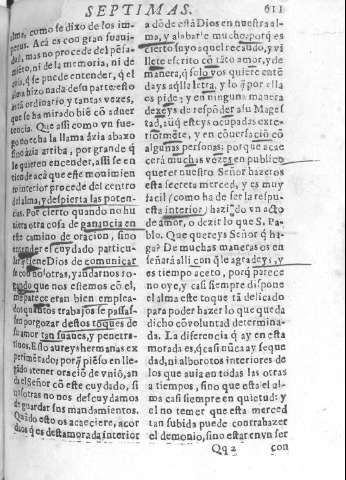 SEPTIMAS.
611
alma, como se dixo de los im-
petus. Acà es con gran suaui-
dad, mas no procede del pẽsa-
miẽto, ni de la memoria, ni de
cosa, q̃ se puede entender, q̃ el
alma hizo nada de su parte. esto
es tã ordinario y tantas vezes,
que se ha mirado biẽ cõ aduer
tencia. Que assi como vn fue-
go no echa la llama hazia abaxo
sino àzia arriba, por grande q̃
le quieren encender, assi se en
tiende acà que este mouimien
to interior procede del centro
del alma, y despierta las poten-
cias. Por cierto quando no hu
uiera otra cosa de ganancia en
este camino de oracion, sino
entender el cuydado particu-
lar q̃ tiene Dios de comunicar
se con nosotras, y andarnos ro-
gando que nos estemos cõ el,
me parece eran bien emplea-
dos quantos trabajos se passas-
sen por gozar destos toques de
su amor tan suaues, y penetra-
tiuos. Esto aureys hermanas ex
perimẽtado; porq̃ piẽso en lle-
gãdo atener oraciõ de vniõ, an
da el Señor cõ este cuydado, si
nosotras no nos descuydamos
de guardar sus mandamientos.
Quãdo esto os acaeciere, acor
daos q̃ es desta morada interior
a dõde està Dios en nuestra al-
ma, y alabarle mucho, porq̃ es
cierto suyo aquel recaudo, y vi
llete escrito cõ tãto amor, y de
manera, q̃ solo vos quiere entẽ
days aq̃lla letra, y lo q̃ por ella
os pide; y en ninguna manera
dexeys de respõder a su Magest
tad, aũq̃ esteys ocupadas exte-
riormẽte, y en cõuersaciõ cõ
algunas personas; porque acae
cerà muchas vezes en publico
querer nuestro Señor hazeros
esta secreta merced, y es muy
facil (como ha de ser la respu-
esta interior) haziẽdo vn acto
de amor, o dezir lo que S. Pa-
blo. Que quereys Señor q̃ ha-
ga? De muchas maneras os en
señarà alli con q̃ le agradeys, y
es tiempo aceto, porq̃ parece
nos oye, y casi siempre dispone
el alma este toque tã delicado
para poder hazer lo que queda
dicho cõ voluntad determina-
da. La diferencia q̃ ay en esta
morada es, q̃ casi nũca ay seque
dad, ni alborotos interiores de
los que auia en todas las otras
a tiempos, sino que està el al-
ma casi siempre en quietud: y
el no temer que esta merced
tan subida puede contrahazer
el demonio, sino estar en vn ser
Qq 2
con